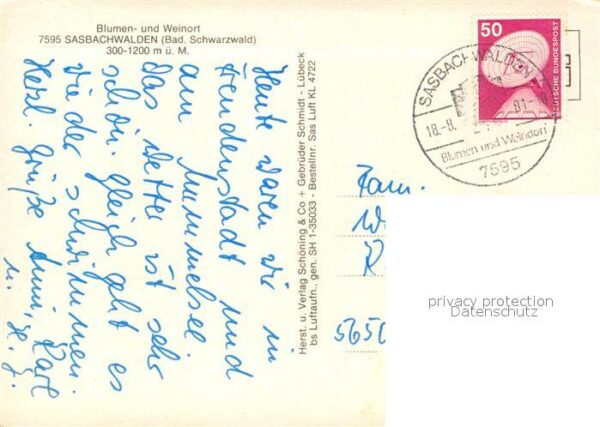 Blumen- und Weinort
7595 SASBACHWALDEN (Bad. Schwarzwald)
300-1200 m ü. M.
Heute waren wir in
Freudenstadt und
am Mummelsee
das Wetter ist sehr
schön gleich geht es
wieder schwimmen
Herzl. Grüße Anni, Karl
u.
Herst. u. Verlag Schöning & Co + Gebrüder Schmidt - Lübeck
bs Luftaufn., gen. SH 1-35033 - Bestellnr. Sas Luft KL 4722
50
DEUTSCHE BUNDESPOST
SASBACHWALDEN
18.-8.
Blumen und Weindorf
7595
Fam.
W
K
5650
privacy protection
Datenschutz